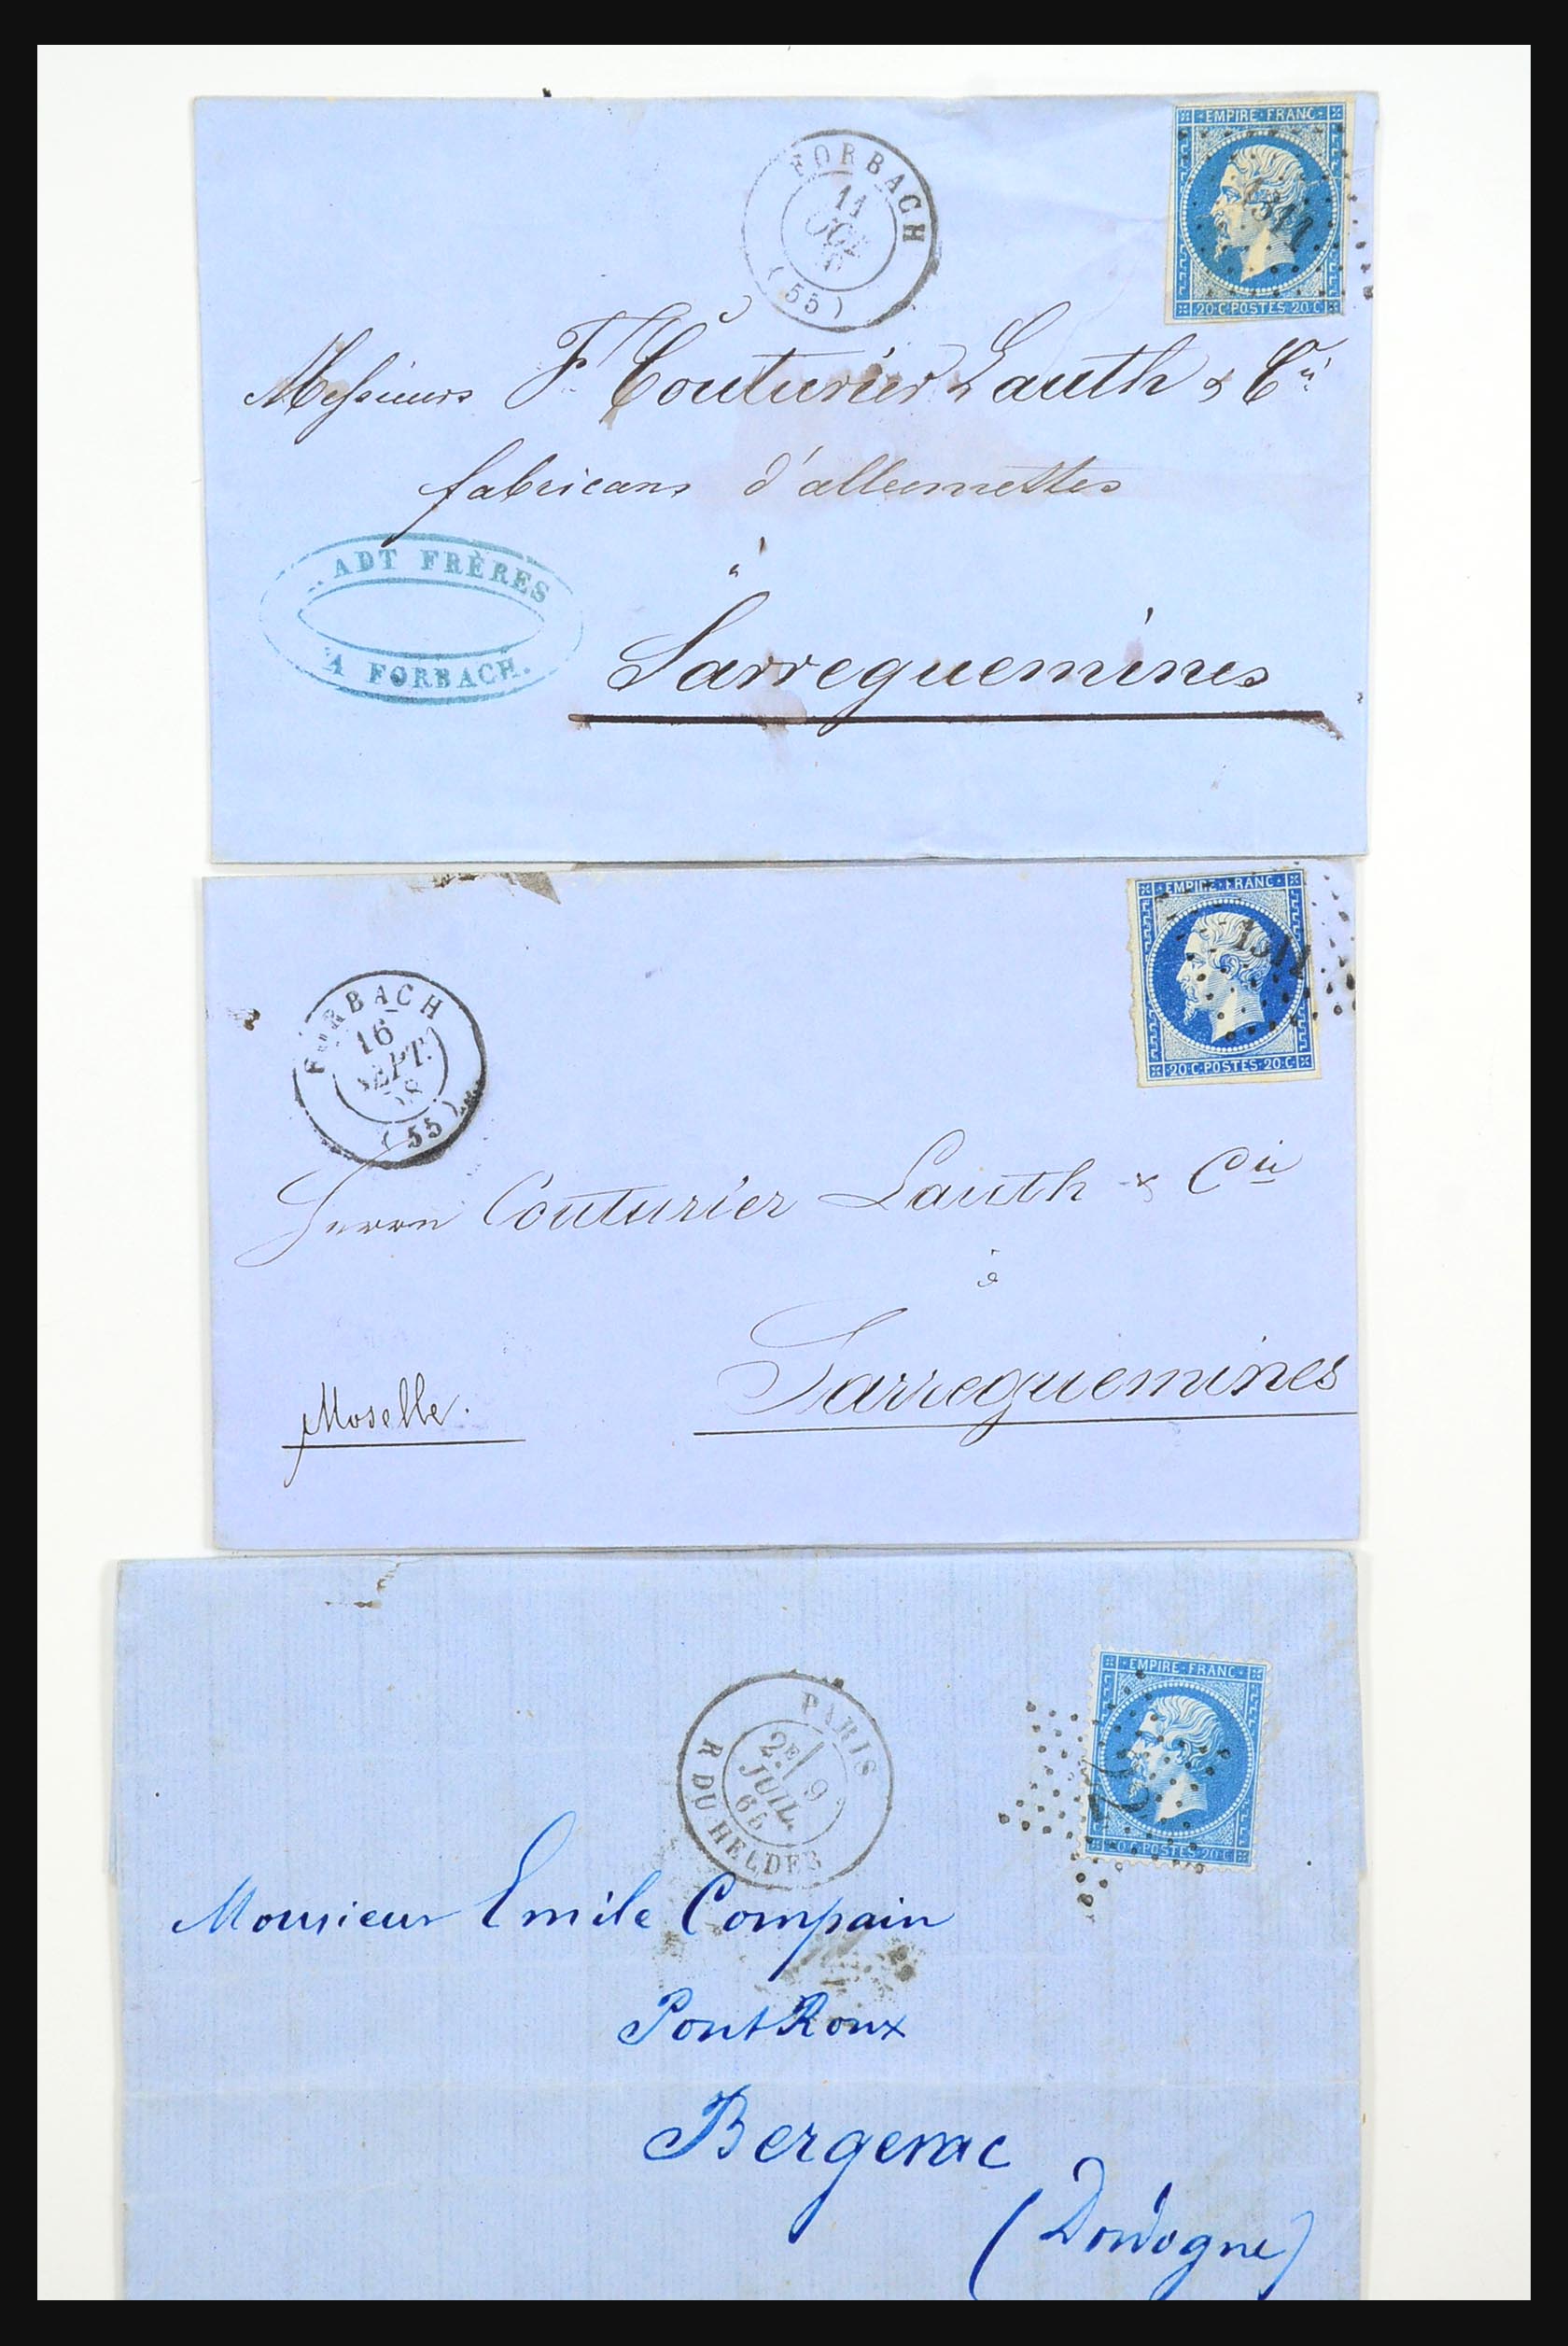 EMPIRE · FRANC
FORBACH
11
OCT
(55)
20 · C · POSTES · 20 · C
Messieurs F. Couturier Lauth & Cie
fabricans d'allumettes
ADT FRÈRES
A FORBACH.
à
Sarreguemines
EMPIRE · FRANC ·
FORBACH
16
SEPT.
58
(55)
20 · C · POSTES · 20 · C
Herrn Couturier Lauth & Cie
à
Sarreguemines
Moselle.
· EMPIRE · FRANC ·
PARIS
2E 9
JUIL.
65
R DU HELDER
20 C · POSTES · 20 C
Monsieur Emile Compain
Pont Roux
Bergerac
(Dordogne)